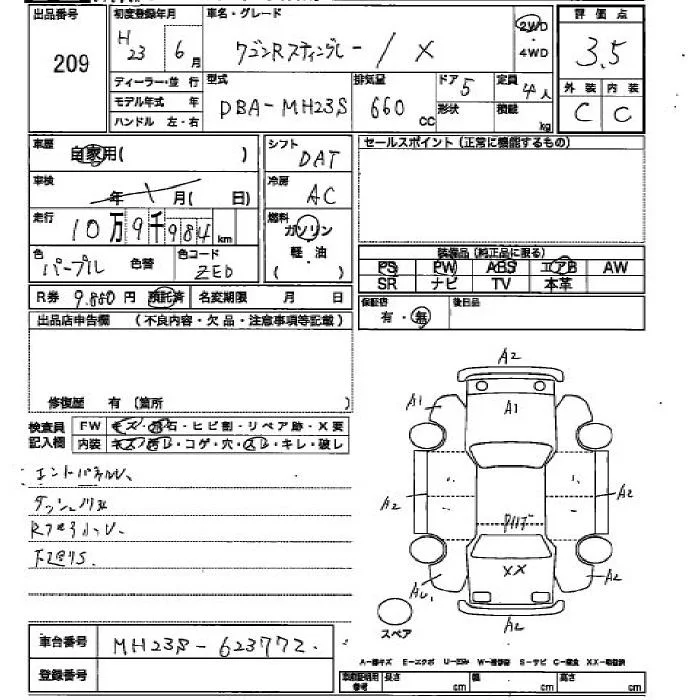 出品番号 初度登録年月 車名・グレード 評価点
209 H23 6月 ワゴンRスティングレー / X 2WD・4WD 3.5
ディーラー・並行 型式 排気量 ドア 5 定員 4人 外装 内装
モデル年式 年 DBA-MH23S 660cc 形状 積載 kg C C
ハンドル 左・右
車歴 自家用( ) シフト DAT セールスポイント(正常に機能するもの)
車検 年 月( 日) 冷房 AC
走行 10万9千984km 燃料 ガソリン
軽・油
( )
色 パープル 色替 色コード ZED
装備品(純正品に限る)
PS PW ABS エアB AW
SR ナビ TV 本革
R券 9.880円 預託済 名変期限 月 日
保証書 有・無 後日品
出品店申告欄 (不良内容・欠品・注意事項等記載)
修復歴 有(箇所 )
検査員 FW キズ・飛石・ヒビ割・リペア跡・X要
記入欄 内装 キズ・汚レ・コゲ・穴・スレ・キレ・破レ
A2
A1 A1
A2 A2
XX
A2
A2
スペア
車台番号 MH23S-623772.
登録番号
車庫証明用参考 長さ cm 幅 cm 高さ cm